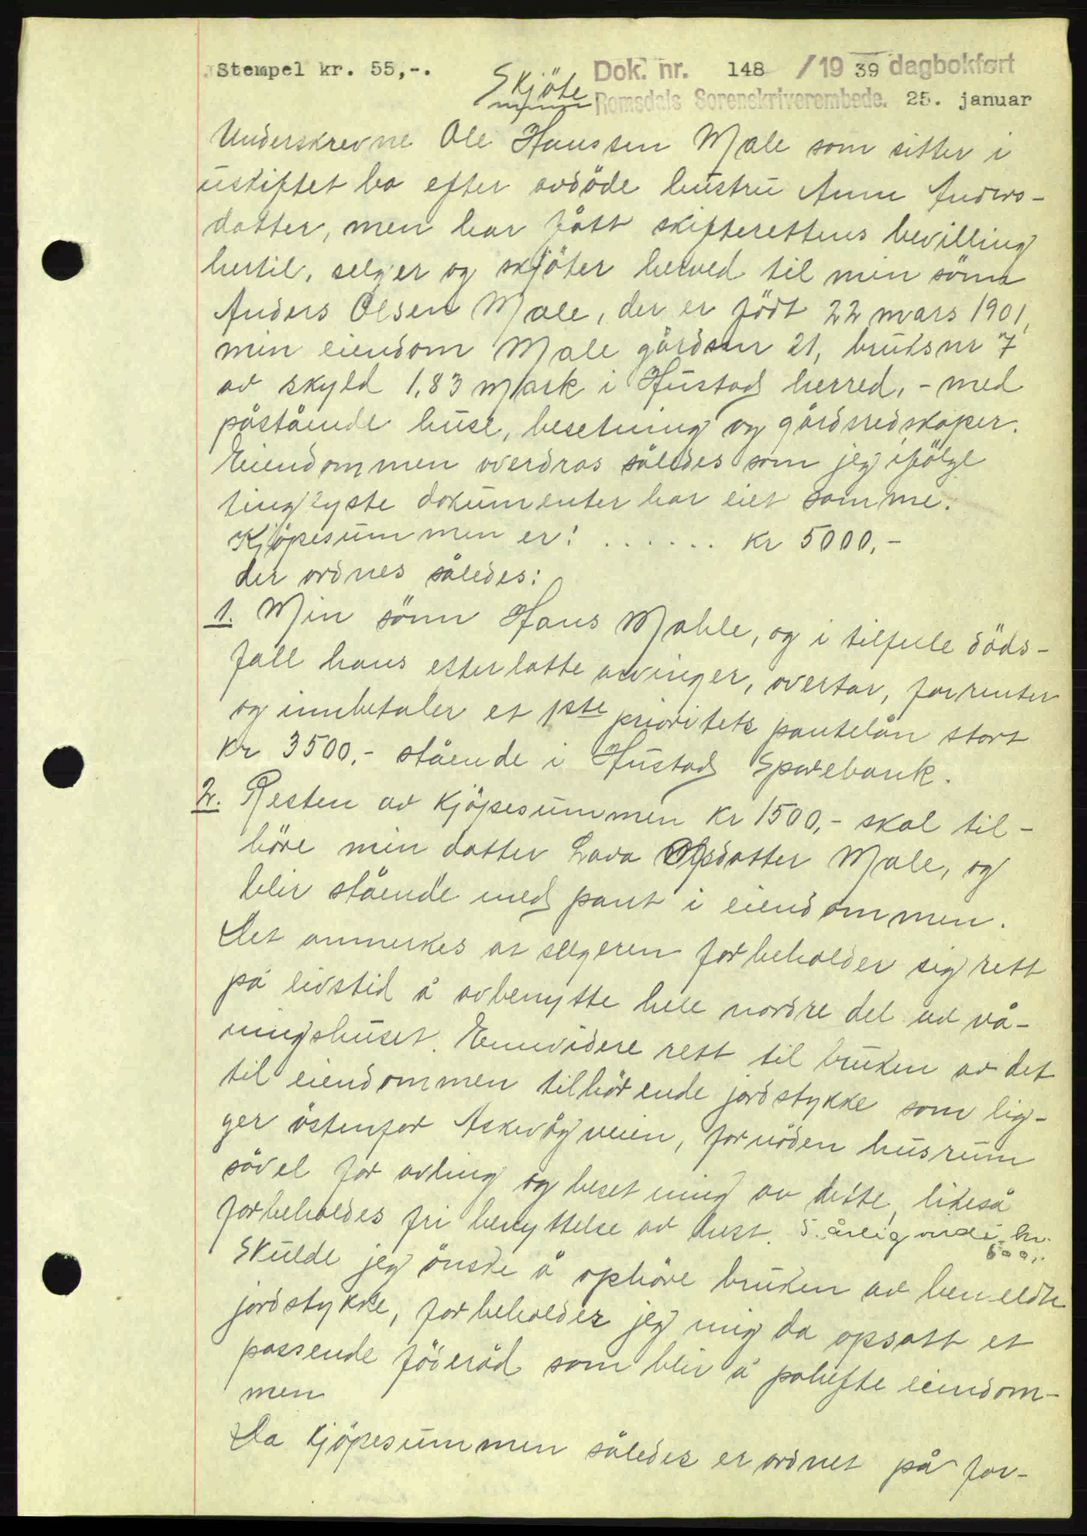 Stempel kr. 55,-.
Dok. nr. 148 /1939 dagbokført
Skjöte
Romsdals Sorenskriverembede. 25. januar
Underskrevne Ole Hanssen Male som sitter i
uskiftet bo efter avdöde hustru Anne Anders-
datter, men har fått skifterettens bevilling
hertil, selger og skjöter herved til min sönn
Anders Olsen Male, der er födt 22 mars 1901,
min eiendom Male gårdsnr 21, bruksnr 7
av skyld 1,83 mark i Hustad herred, - med
påstående huse, besetning og gårdsredskaper.
Eiendommen overdras således som jeg ifölge
tinglyste dokumenter har eiet samme.
Kjöpesummen er: ...... kr 5000,-
der ordnes således:
1. Min sönn Hans Mahle, og i tilfelle döds-
fall hans efterlatte arvinger, overtar, forrenter
og innbetaler et 1ste prioritets pantelån stort
kr 3500,- stående i Hustad Sparebank.
2. Resten av kjöpesummen kr 1500,- skal til-
höre min datter Lava Olsdatter Male, og
blir stående med pant i eiendommen.
Det anmerkes at selgeren forbeholder sig rett
på livstid å avbenytte hele nordre del av vå-
ningshuset. Ennvidere rett til bruken av det
til eiendommen tilhörende jordstykke som lig-
ger östenfor Askevågveien, fornöden husrum
såvel for avling og besetning av dette, likeså
forbeholdes fri benyttelse av hest. 5. årlig verdi kr.
600,-
Skulde jeg önske å ophöre bruken av benevnte
jordstykke, forbeholder jeg mig da opsatt et
passende föderåd som blir å påhefte eiendom-
men
Da kjöpesummen således er ordnet på for-